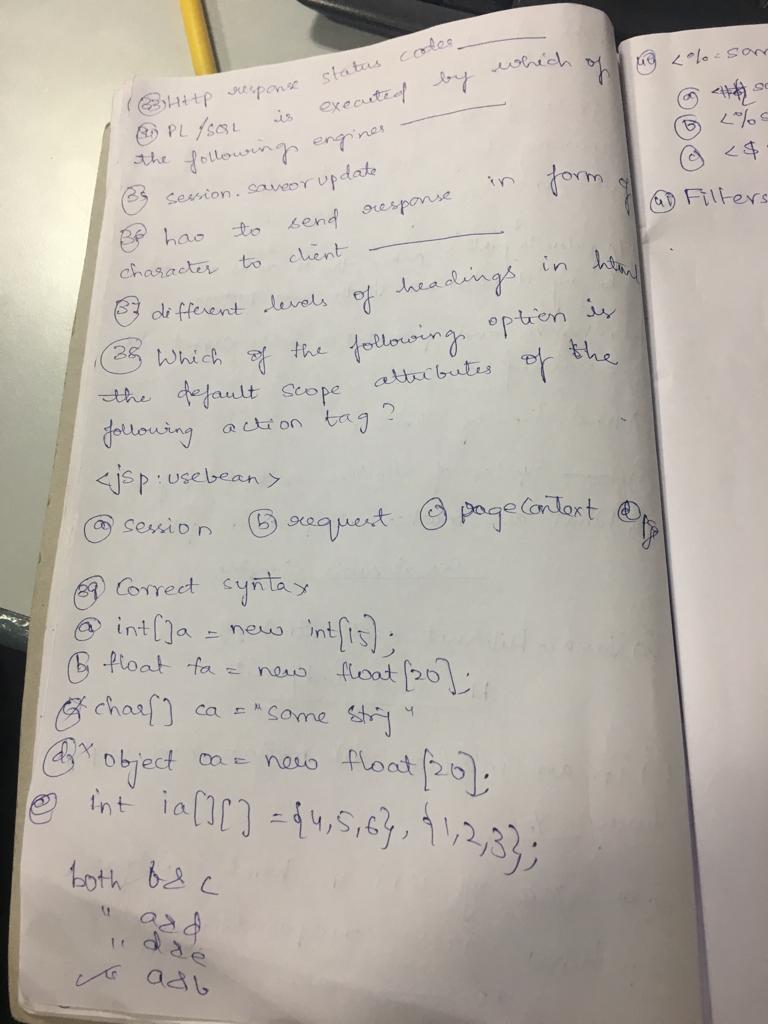 (33) Http response status codes ______
(34) PL/SQL is executed by which of
the following engines ______
(35) session.saveorupdate
(36) has to send response in form of
character to client ______
(37) different levels of headings in html
(38) Which of the following option is
the default scope attributes of the
following action tag?
<jsp:usebean>
(a) session (b) request (c) pageContext (d) pg
(39) Correct syntax
(a) int[]a = new int[15];
(b) float fa = new float[20];
char[] ca = "some strig"
(d) x object oa = new float[20];
(e) int ia[][] = {4,5,6}, {1,2,3};
both b & c
" a & d
" d & e
✓ a & b
(40) <%= som
(a)
(b) <%s
(c) <$
(41) Filters